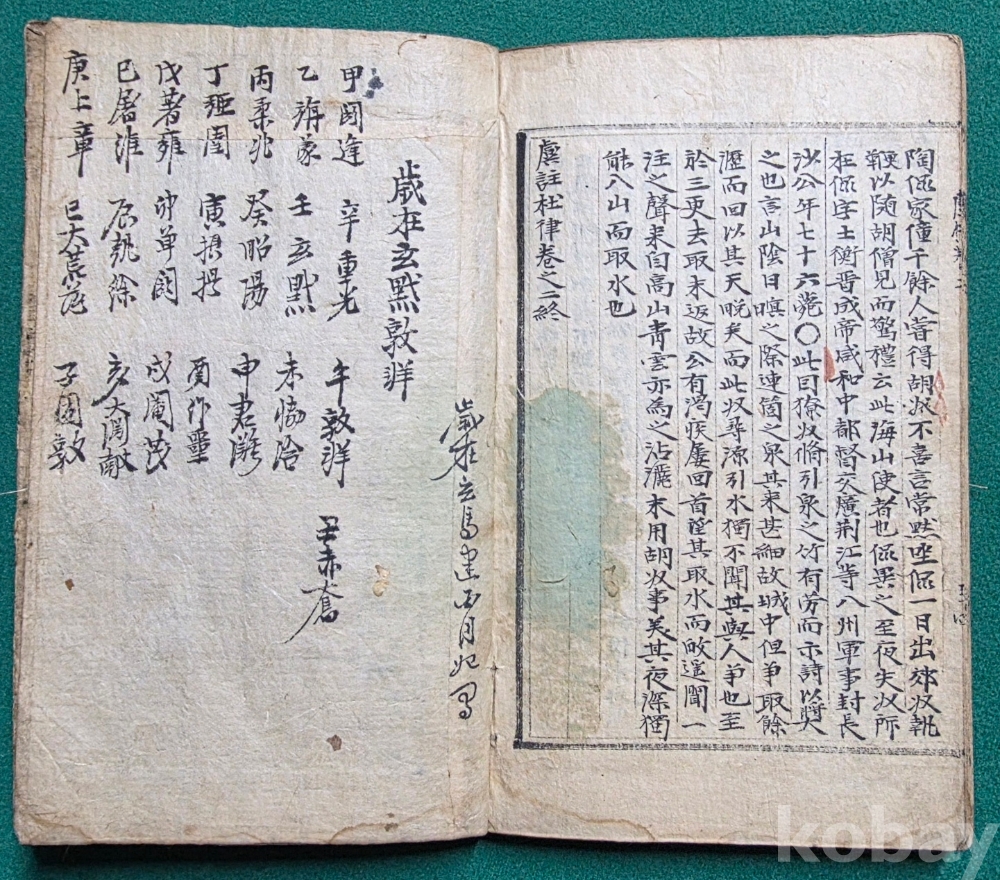 陶侃家僮千餘人嘗得胡奴不喜言常默坐侃一日出郊奴執
鞭以随胡僧見而驚禮云此海山使者也侃異之至夜失奴所
在侃字士衡晋成帝咸和中都督交廣荆江等八州軍事封長
沙公年七十六薨〇此曰獠奴脩引泉之竹有劳而示詩以奬
之也言山陰日暝之際連箇之泉其来甚細故城中但爭取餘
瀝而回以其天晩矣而此奴尋源引水獨不聞其與人爭也至
於三更去取未返故公有渴疾屡回首望其取水而俄遥聞一
注之聲来自高山青雲亦為之沾灑末用胡奴事美其夜深獨
能入山而取水也
虞註杜律卷之二終
歲在玄馬建酉月始习
歲在玄黓敦牂
甲閼逢 辛重光 午敦牂 丑赤奮
乙旃蒙 壬玄黓 未協洽
丙柔兆 癸昭陽 申君灘
丁強圉 寅摂提 酉作噩
戊著雍 卯单閼 戌閹茂
巳屠維 辰執徐 亥大淵献
庚上章 巳大荒落 子困敦
kobay